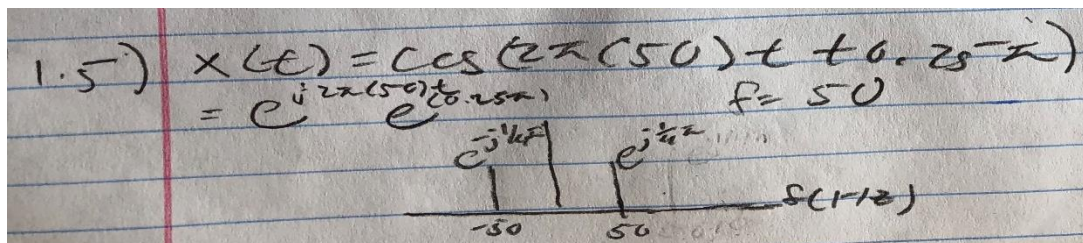 1.5) x(t) = cos(2π(50)t + 0.25π)
= e^{j2π(50)t} e^{(0.25π)} f = 50
e^{-j¼π} e^{j¼π}
-50 50 f(Hz)